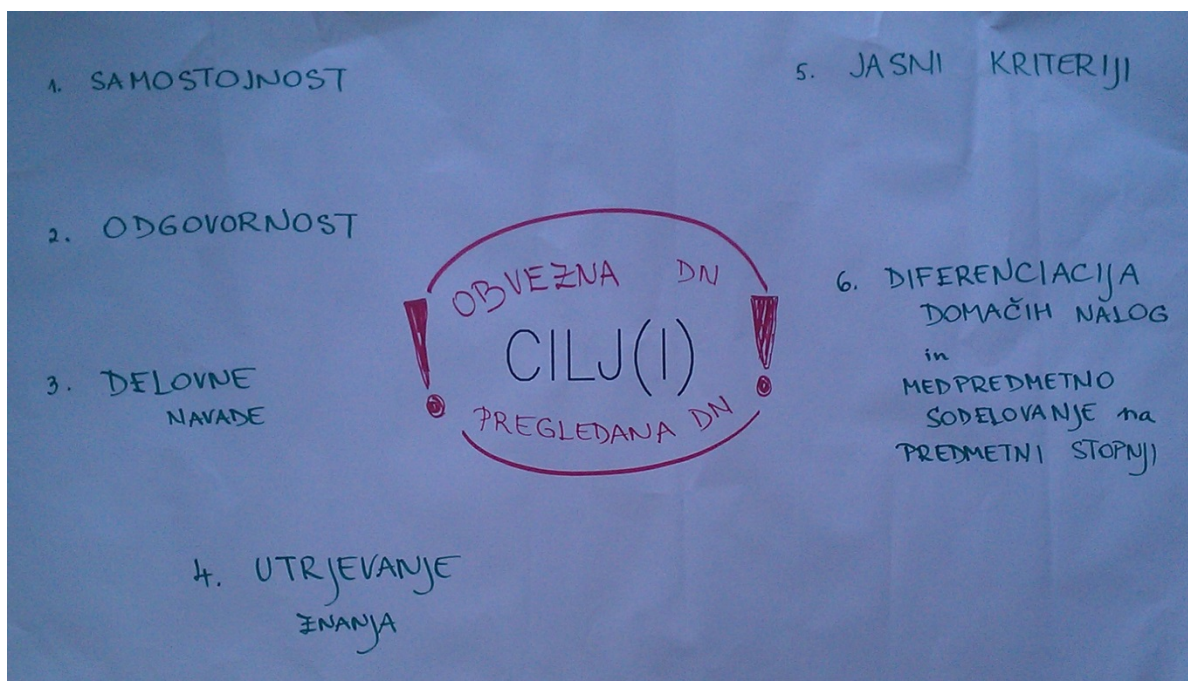 1. SAMOSTOJNOST
2. ODGOVORNOST
3. DELOVNE
NAVADE
4. UTRJEVANJE
ZNANJA
OBVEZNA DN
CILJ(I)
PREGLEDANA DN
5. JASNI KRITERIJI
6. DIFERENCIACIJA
DOMAČIH NALOG
in
MEDPREDMETNO
SODELOVANJE na
PREDMETNI STOPNJI